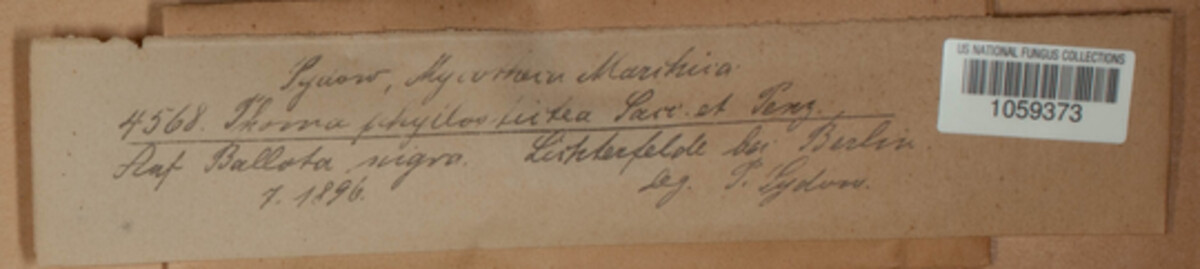 Sydow, Mycotheca Marchica
4568. Phoma phyllostictea Sacc. et Penz.
Auf Ballota nigra. Lichterfelde bei Berlin.
7. 1896. Leg. P. Sydow.
US NATIONAL FUNGUS COLLECTIONS
1059373